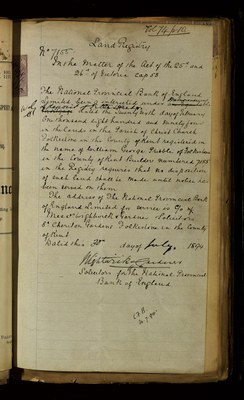 Land Registry
In the Matter of the Act of the 25th and
26th of Victoria cap 53
The National Provincial Bank of England
Limited being interested under
dated the twentieth day of
One thousand eight hundred and ninety four
in the lands in the Parish of Christ Church
Folkestone in the County of Kent registered in
the name of William George of Folkestone
in the County of Kent Builder numbered
on the Registry requires that no disposition
of such land shall be made until notice has
been served on them
The address of The National Provincial Bank
of England Limited for service is c/o of
Messrs Wightwick & Gardner Solicitors
Cheriton Gardens Folkestone in the County
of Kent
Dated this day of July 1894
Wightwick & Gardner
Solicitors for The National Provincial
Bank of England